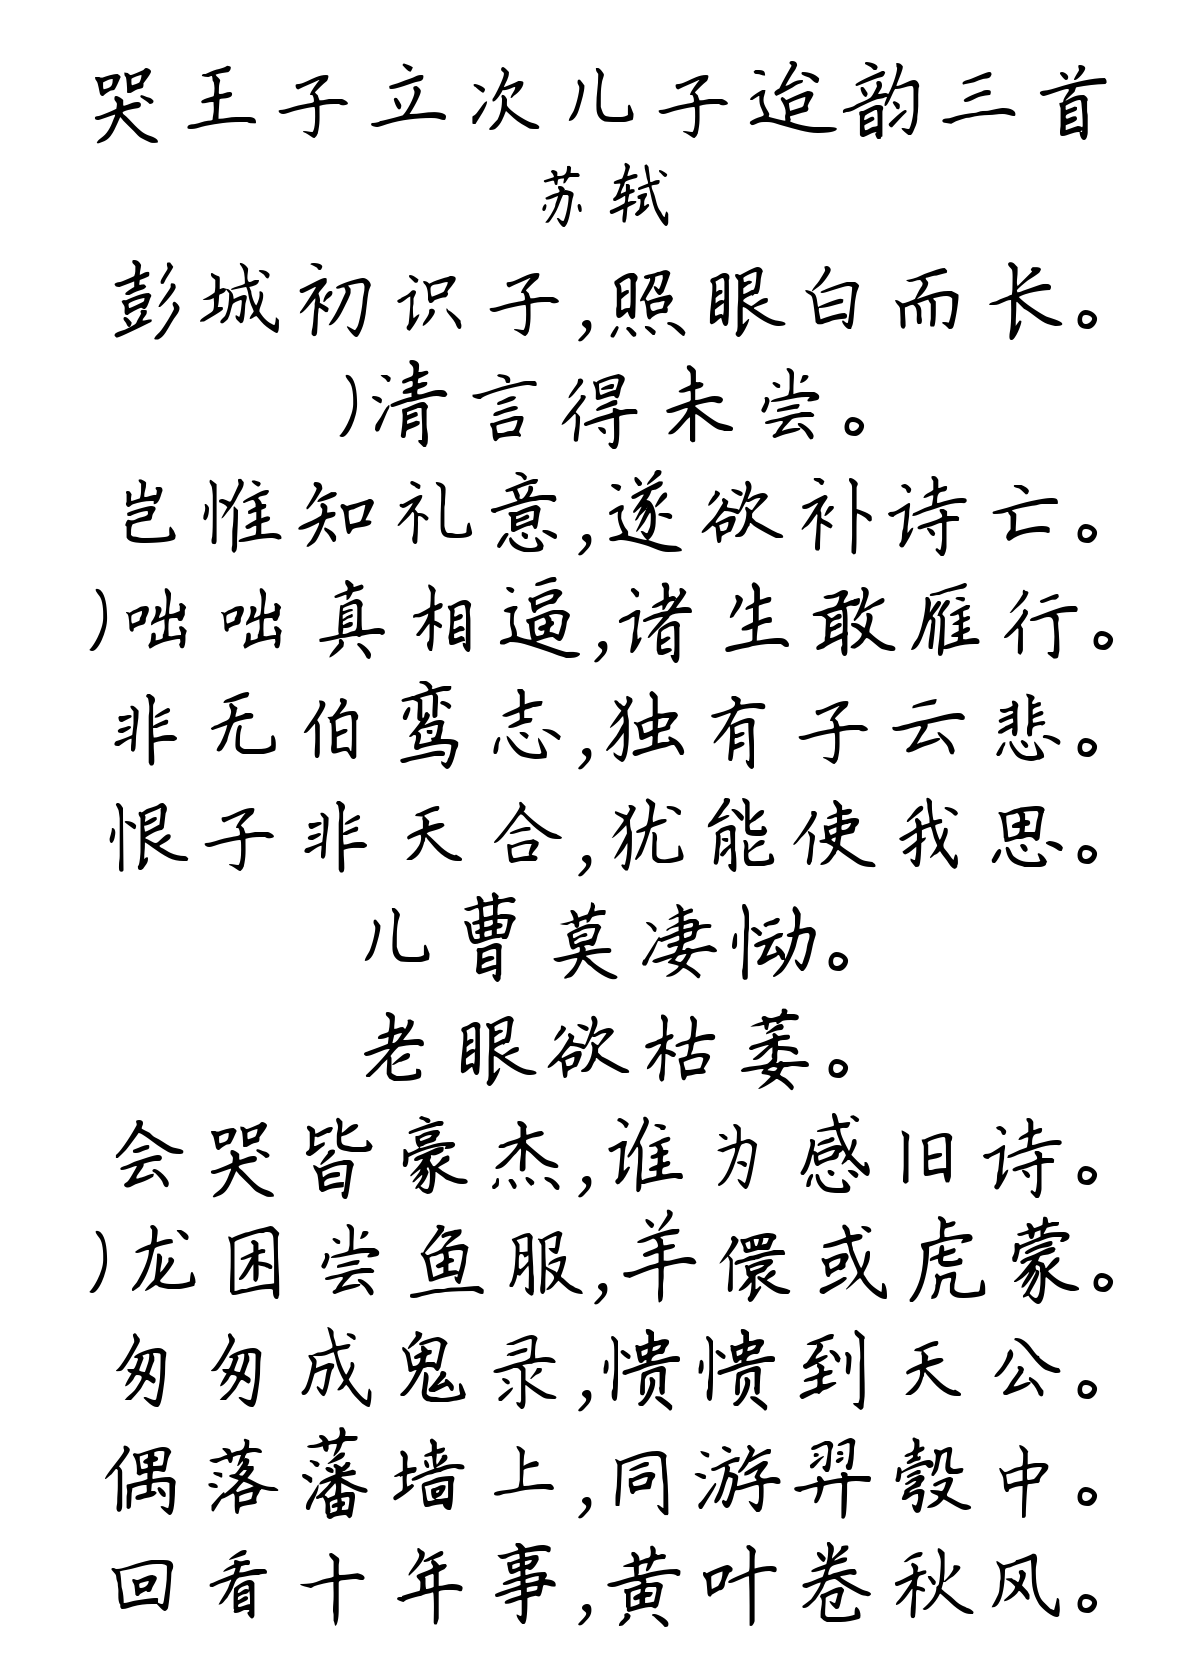 哭王子立次儿子迨韵三首
苏轼
彭城初识子,照眼白而长。
)清言得未尝。
岂惟知礼意,遂欲补诗亡。
)咄咄真相逼,诸生敢雁行。
非无伯鸾志,独有子云悲。
恨子非天合,犹能使我思。
儿曹莫凄恸。
老眼欲枯萎。
会哭皆豪杰,谁为感旧诗。
)龙困尝鱼服,羊儇或虎蒙。
匆匆成鬼录,愦愦到天公。
偶落藩墙上,同游羿彀中。
回看十年事,黄叶卷秋风。